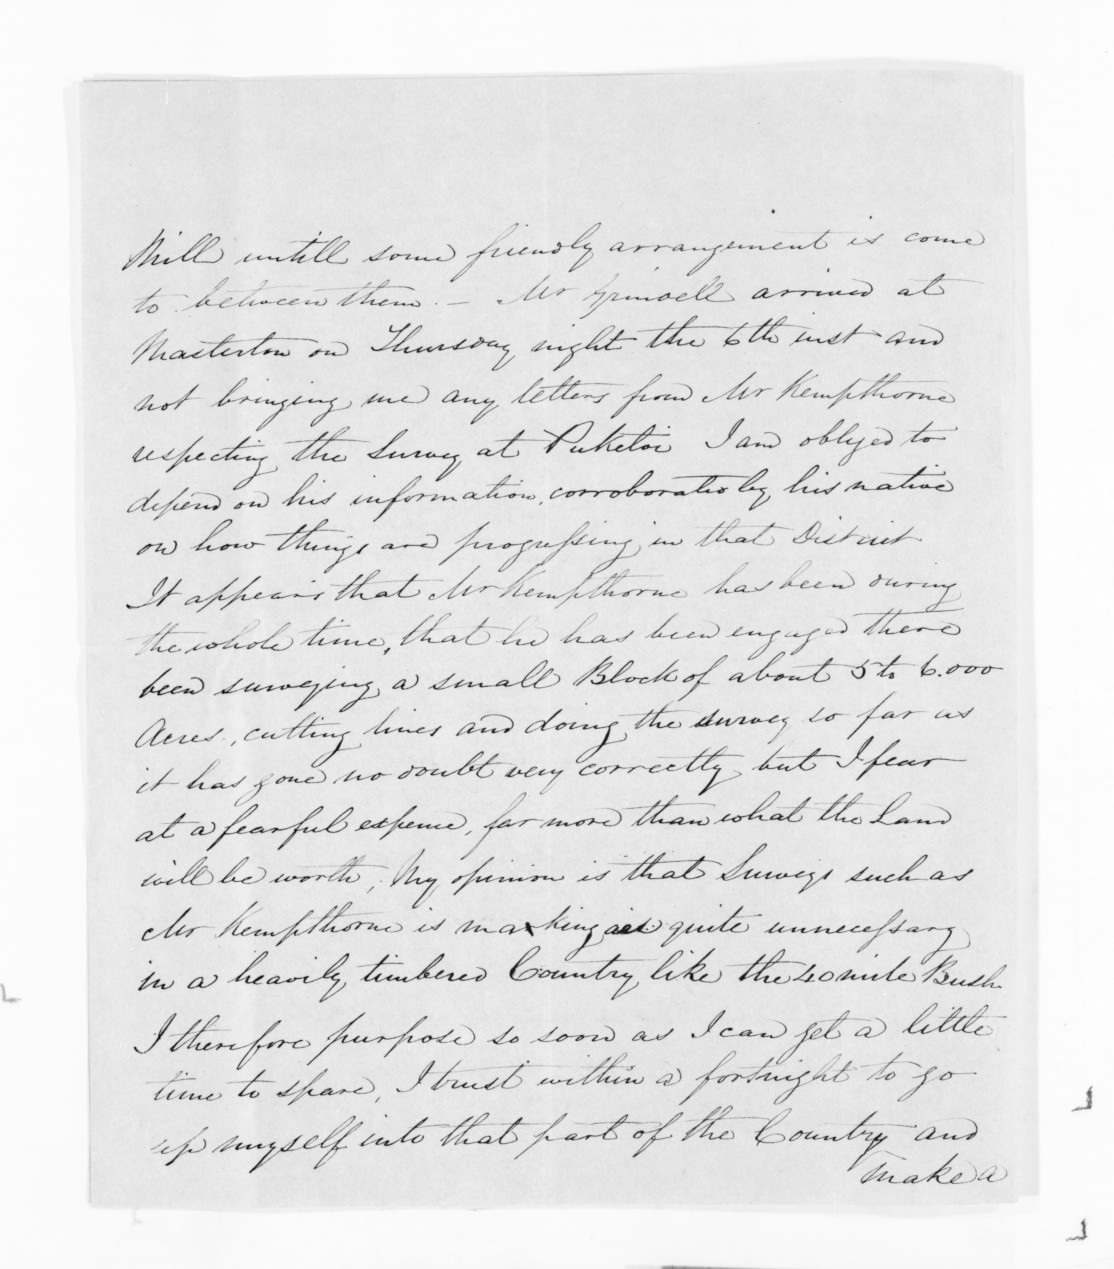 Mill untill some friendly arrangement is come
to between them. — Mr Grindell arrived at
Masterton on Thursday night the 6th inst and
not bringing me any letters from Mr Kempthorne
respecting the Survey at Puketoi I am obliged to
depend on his information, corroborated by his native
on how things are progressing in that District
It appears that Mr Kempthorne has been during
the whole time, that he has been engaged there
been surveying a small Block of about 5 to 6.000
Acres, cutting lines and doing the survey so far as
it has gone no doubt very correctly but I fear
at a fearful expense, far more than what the Land
will be worth; My opinion is that Surveys such as
Mr Kempthorne is making is quite unnecessary
in a heavily timbered Country like the 40 mile Bush
I therefore purpose so soon as I can get a little
time to spare, I trust within a fortnight to go
up myself into that part of the Country and
make a